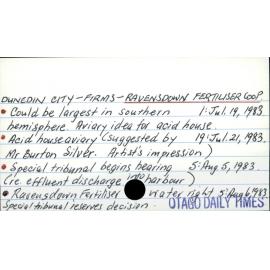 DUNEDIN CITY - FIRMS - RAVENSDOWN FERTILISER COOP
• Could be largest in southern 1: Jul. 19, 1983
hemisphere. Aviary idea for acid house.
• Acid house aviary (suggested by 19: Jul. 21, 1983.
Mr Burton Silver. Artist's impression)
• Special tribunal begins hearing 5: Aug 5, 1983
(re. effluent discharge into harbour)
• Ravensdown Fertiliser water right 5: Aug 6 1983
Special tribunal reserves decision.
OTAGO DAILY TIMES